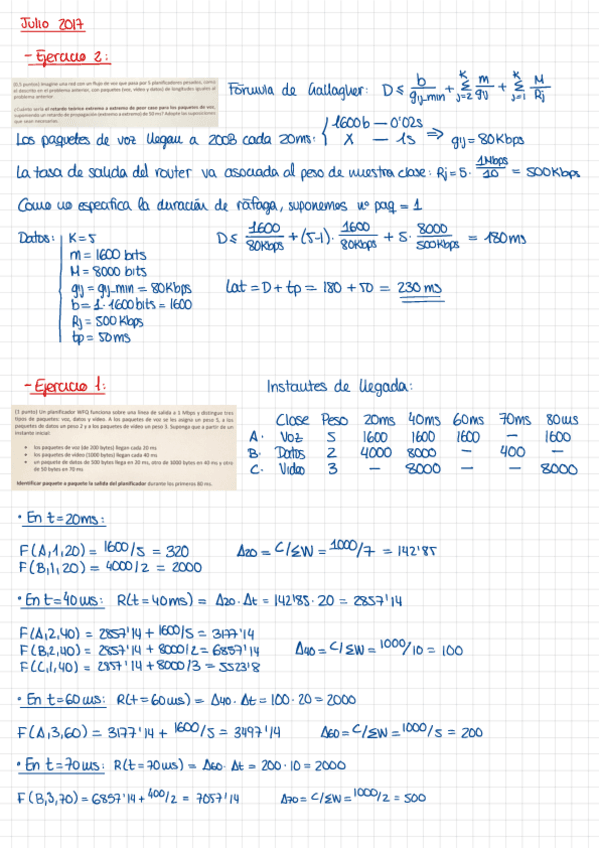 Julio 2017
- Ejercicio 2:
(0,5 puntos) Imagine una red con un flujo de voz que pasa por 5 planificadores pesados, como el descrito en el problema anterior, con paquetes (voz, vídeo y datos) de longitudes iguales al problema anterior.
¿Cuánto sería el retardo teórico extremo a extremo de peor caso para los paquetes de voz, suponiendo un retardo de propagación (extremo a extremo) de 50 ms? Adopte las suposiciones que sean necesarias.
Fórmula de Gallagher: D ≤ b/gy_min + Σ(j=2..K) m/gy + Σ(j=1..K) M/Rj
Los paquetes de voz llegan a 200B cada 20ms: { 1600b — 0'02s
X — 1s ⇒ gy = 80Kbps
La tasa de salida del router va asociada al peso de nuestra clase: Rj = 5 · 1Mbps/10 = 500Kbps
Como no especifica la duración de ráfaga, suponemos nº paq = 1
Datos: K = 5
m = 1600 bits
M = 8000 bits
gy = gy_min = 80Kbps
b = 1 · 1600 bits = 1600
Rj = 500 Kbps
tp = 50ms
D ≤ 1600/80Kbps + (5-1) · 1600/80Kbps + 5 · 8000/500Kbps = 180ms
Lat = D + tp = 180 + 50 = 230 ms
- Ejercicio 1:
(1 punto) Un planificador WFQ funciona sobre una línea de salida a 1 Mbps y distingue tres tipos de paquetes: voz, datos y vídeo. A los paquetes de voz se les asigna un peso 5, a los paquetes de datos un peso 2 y a los paquetes de vídeo un peso 3. Suponga que a partir de un instante inicial:
• los paquetes de voz (de 200 bytes) llegan cada 20 ms
• los paquetes de vídeo (1000 bytes) llegan cada 40 ms
• un paquete de datos de 500 bytes llega en 20 ms, otro de 1000 bytes en 40 ms y otro de 50 bytes en 70 ms
Identificar paquete a paquete la salida del planificador durante los primeros 80 ms.
Instantes de llegada:
Clase Peso 20ms 40ms 60ms 70ms 80ms
A. Voz 5 1600 1600 1600 — 1600
B. Datos 2 4000 8000 — 400 —
C. Video 3 — 8000 — — 8000
· En t=20ms:
F(A,1,20) = 1600/5 = 320 Δ20 = C/ΣW = 1000/7 = 142'85
F(B,1,20) = 4000/2 = 2000
· En t=40ms: R(t=40ms) = Δ20 · Δt = 142'85 · 20 = 2857'14
F(A,2,40) = 2857'14 + 1600/5 = 3177'14
F(B,2,40) = 2857'14 + 8000/2 = 6857'14 Δ40 = C/ΣW = 1000/10 = 100
F(C,1,40) = 2857'14 + 8000/3 = 5523'8
· En t=60ms: R(t=60ms) = Δ40 · Δt = 100 · 20 = 2000
F(A,3,60) = 3177'14 + 1600/5 = 3497'14 Δ60 = C/ΣW = 1000/5 = 200
· En t=70ms: R(t=70ms) = Δ60 · Δt = 200 · 10 = 2000
F(B,3,70) = 6857'14 + 400/2 = 7057'14 Δ70 = C/ΣW = 1000/2 = 500